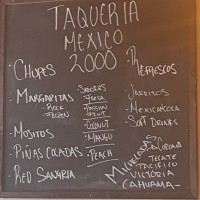 TAQUERIA
MEXICO
2000
· CHUPES
· MARGARITAS
· ROCK
· FROZEN
SABORES
FRESA
PASSION
FRUIT
COCONUT
MANGO
PEACH
· MOJITOS
· PIÑAS COLADAS
· RED SANGRIA
REFRESCOS
· JARRITOS
· MEXICAN COCA
· SOFT DRINKS
MICHELADAS
CORONA
TECATE
PACIFICO
VICTORIA
CAHUAMA